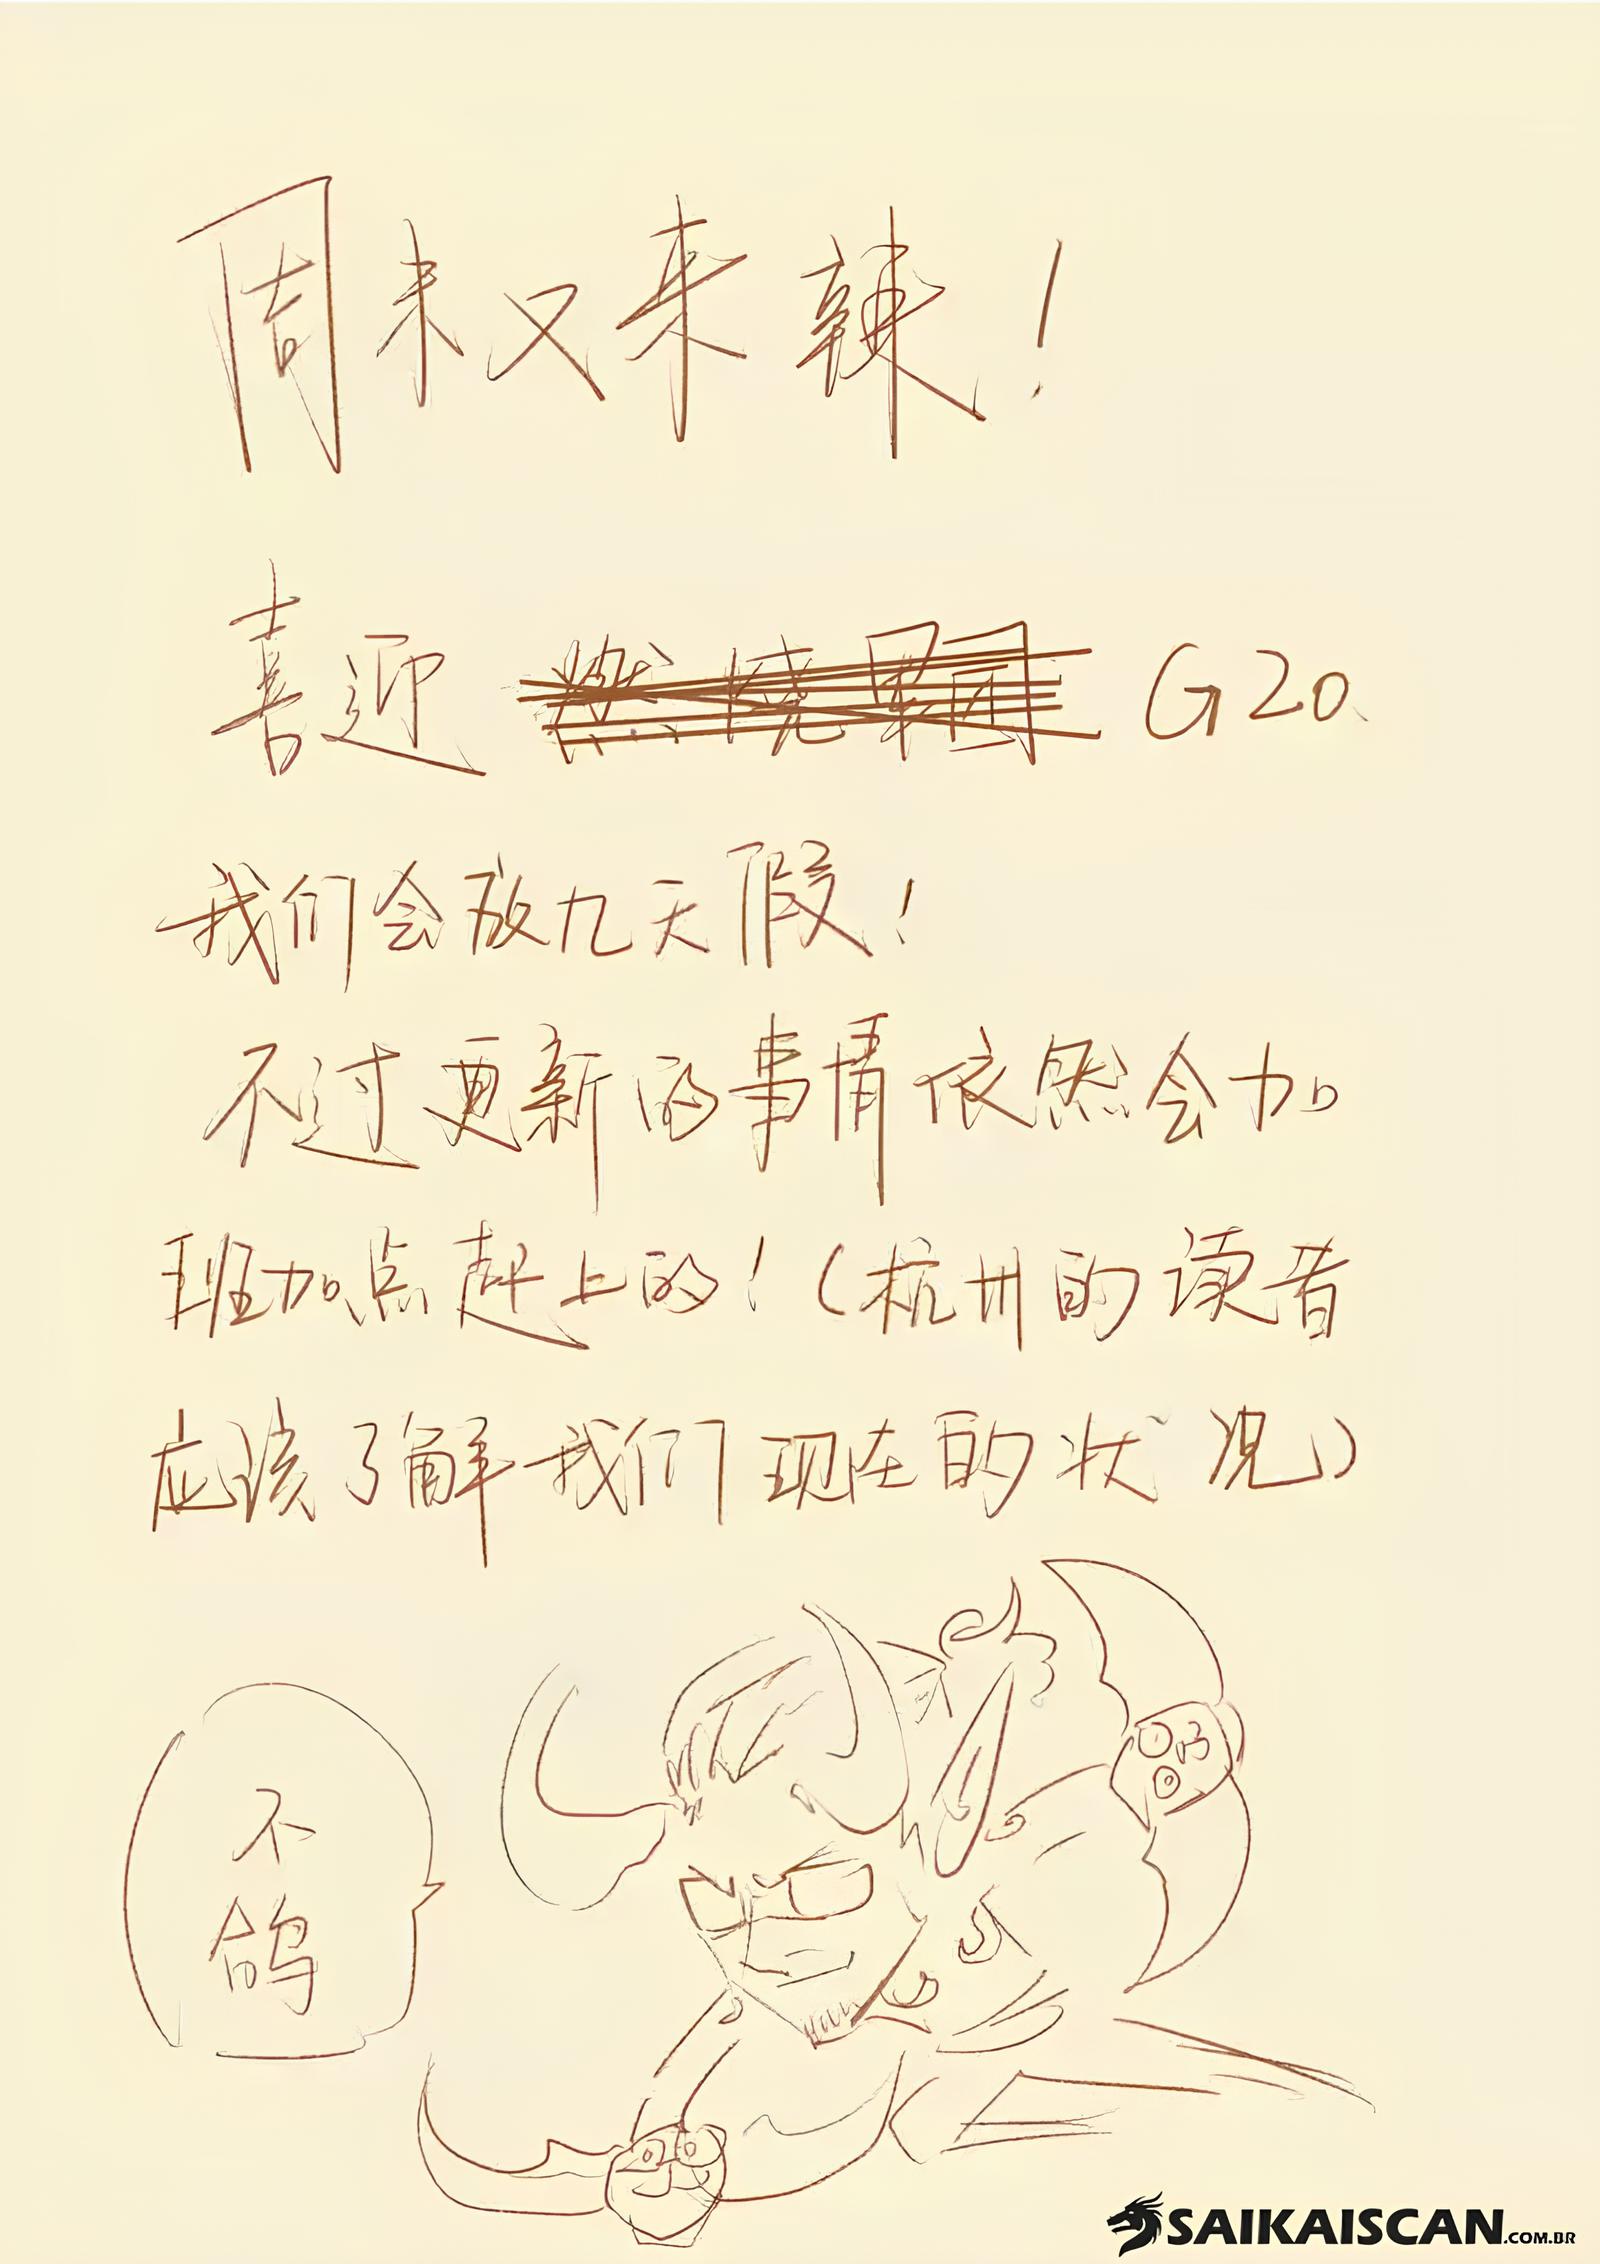 周末又来辣！
喜迎 燃烧军团 G20
我们会放九天假！
不过更新的事情依然会加
班加点赶上的！（杭州的读者
应该了解我们现在的状况）
不
鸽
SAIKAISCAN.COM.BR